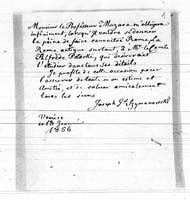 Monsieur le Professeur Mazara m'obligera
infiniment, lorsqu'il voudra se donner
la peine de faire connaître Rome, la
Rome antique surtout, à Mr le Comte
Alfrède Potocki, qui désirerait
l'étudier dans tous ses détails
Je profite de cette occasion pour
l'assurer de toute mon estime et
Amitié, et de saluer amicalement
tous les siens
Joseph Szymanowski
Venise
Janvier
1856